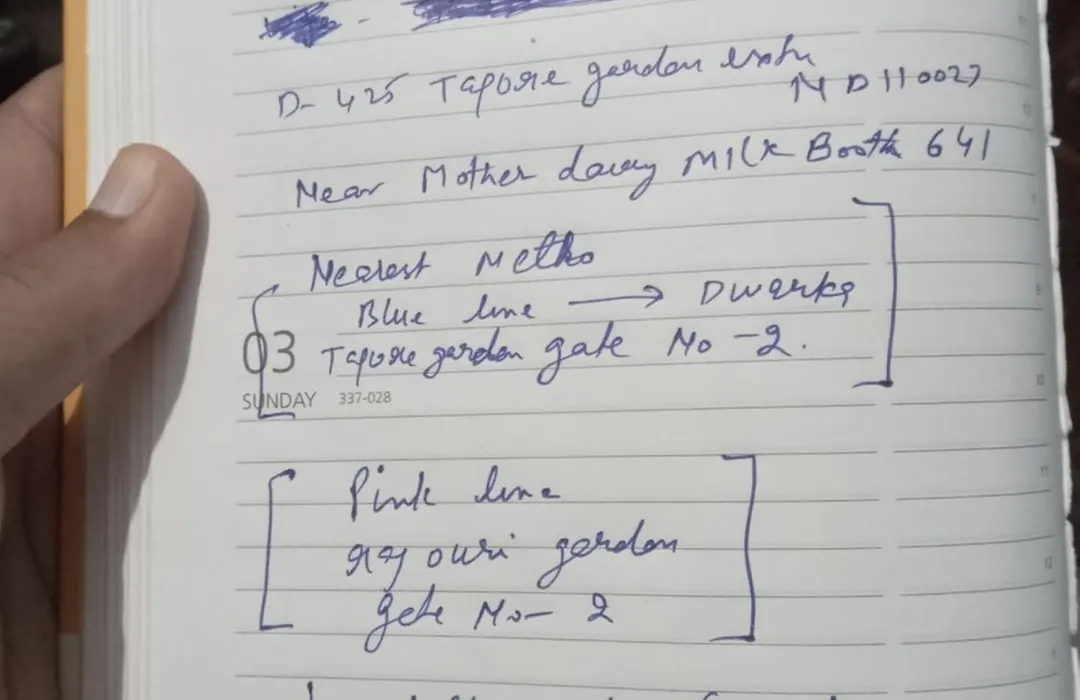 D- 425 Tagore garden extn
N D 110027
Near Mother dairy Milk Booth 641
Nearest Metro
Blue line → Dwarka
03 Tagore garden gate No -2.
SUNDAY 337-028
Pink line
rajouri garden
gate No- 2